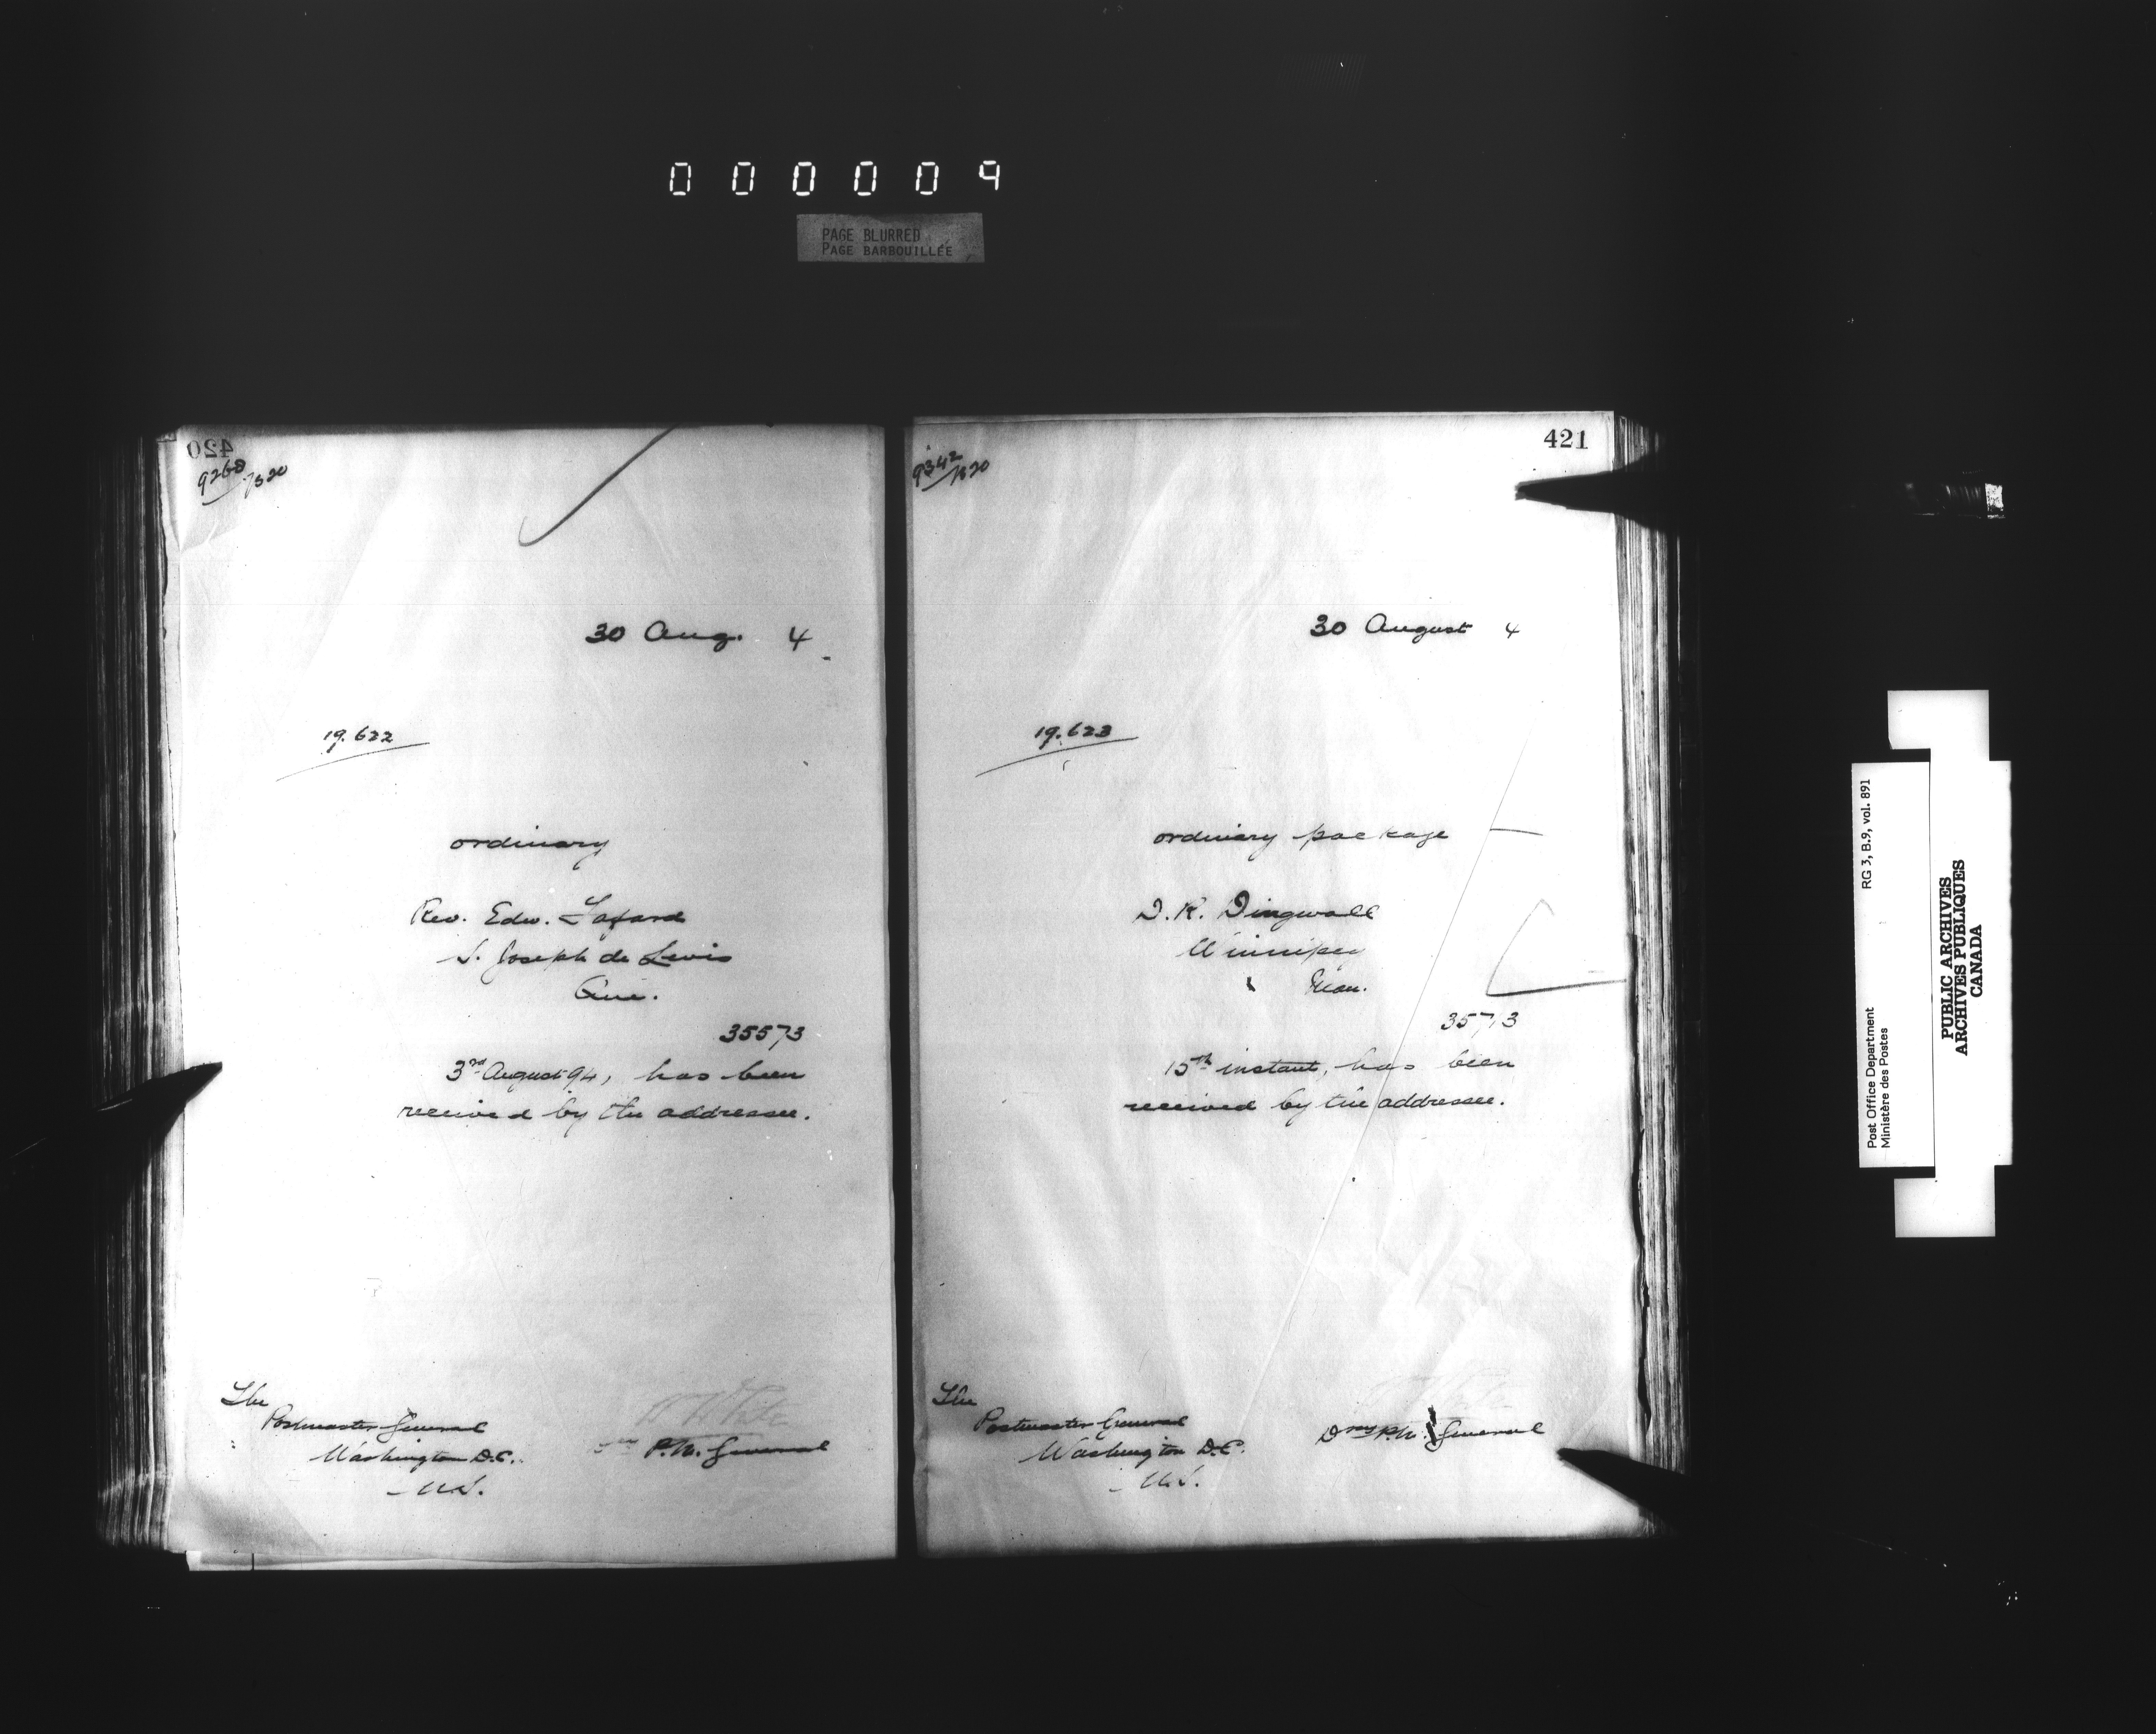 000009
PAGE BLURRED
PAGE BARBOUILLÉE
420
9268/1320
30 Aug. 4
19.622
ordinary
Rev. Edw.
S. Joseph de Levis
Que.
35573
3rd August 94, has been
received by the addressee.
The
Postmaster General
Washington D.C.
U.S.
W White
P.M. General
421
9342/1320
30 August 4
19.623
ordinary package
D. R. Dingwall
Winnipeg
Man.
35713
15th instant, has been
received by the addressee.
The
Postmaster General
Washington D.C.
U.S.
P.M. General
RG 3, B.9, vol. 891
Post Office Department
Ministère des Postes
PUBLIC ARCHIVES
ARCHIVES PUBLIQUES
CANADA